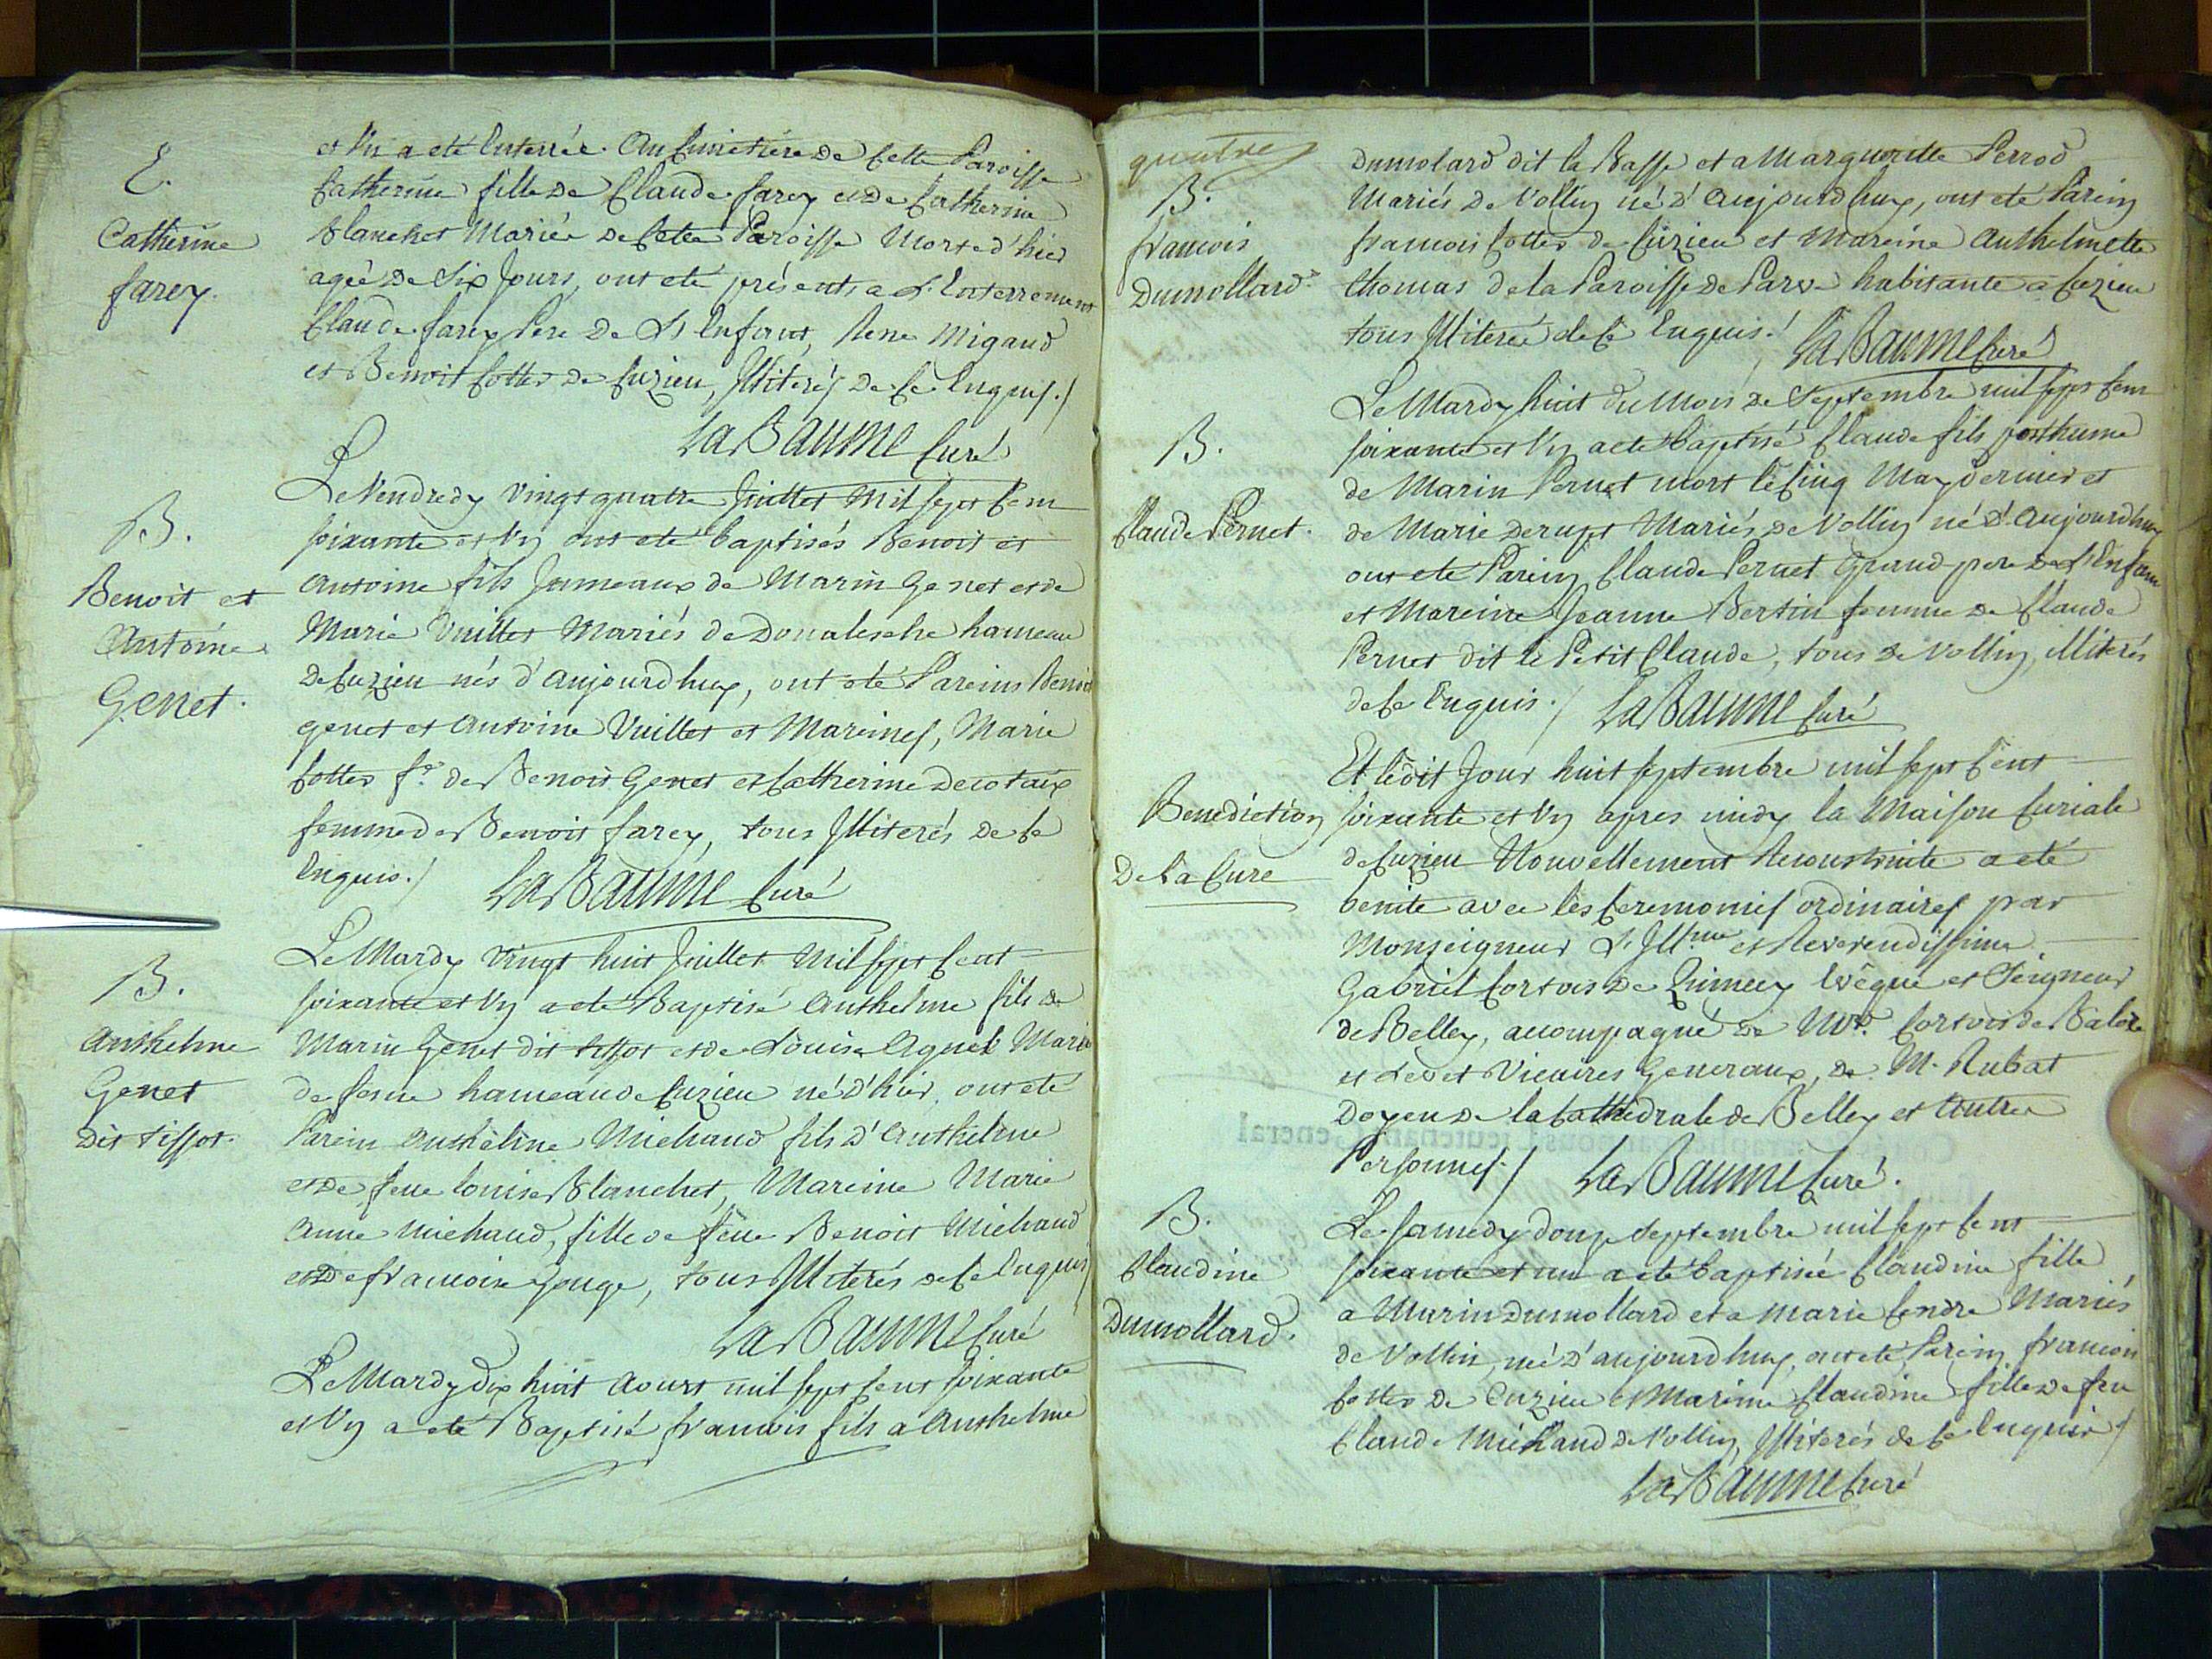 E.
Catherine
farey.
et Vn a eté Enterrée Au Cimetiere de Cette Paroisse
Catherine fille de Claude farey et de Catherine
Blanchet Mariés de Cette Paroisse Morte d'hier
agée de Six Jours, ont eté présents a L'Enterrement
Claude farey Pere de L'Enfant, Rene Migaud
et Benoit Cottes de Cuzieu, Illiterés de Ce Enquis./
La Baume Curé
B.
Benoit et
Antoine
Genet.
Le Vendredy Vingt quatre Juillet Mil Sept Cent
soixante et Vn ont eté baptisés Benoit et
Antoine fils Jumeaux de Marin Genet et de
Marie Vuillet Mariés de Donalesche hameau
de Cuzieu nés d'Aujourdhuy, ont eté Pareins Benoit
genet et Antoine Vuillet et Mareines, Marie
Cottes fe. de Benoit Genet et Catherine Decotaix
femme de Benoit farey, tous Illiterés de Ce
Enquis./ La Baume Curé
B.
Anthelme
Genet
dit tissot.
Le Mardy Vingt huit Juillet Mil Sept Cent
soixante et Vn a eté Baptisé Anthelme fils de
Marin Genet dit tissot et de Louise Agnel Mariés
de hameau de Cuzieu né d'hier, ont eté
Parein Anthelme Michaud fils d'Anthelme
et de feue Louise Blanchet, Mareine Marie
Anne Michaud, fille de feu Benoit Michaud
et de francoise gonge, tous Illiterés de Ce Enquis/
La Baume Curé
Le Mardy dix huit Aoust mil sept Cent soixante
et Vn a eté Baptisé francois fils a Anthelme
quatre
B.
francois
Dumollard.
Dumolard dit la Basse et a Margueritte Perrod
Mariés de Vollin né d'Aujourdhuy, ont eté Parein
francois Cottes de Cuzieu et Mareine Anthelmette
thomas de la Paroisse de Parve habitante a Cuzieu
tous Illiterés de Ce Enquis./ La Baume Curé
B.
Claude Pernet.
Le Mardy huit du Mois de Septembre mil Sept Cent
soixante et Vn a eté baptisé Claude fils posthume
de Marin Pernet mort le Cinq May dernier et
de Marie Derupt Mariés de Vollin né d'Aujourdhuy
ont eté Parein Claude Pernet Grand pere de L'Enfant
et Mareine Jeanne Bertin femme de Claude
Pernet dit le Petit Claude, tous de Vollin, illiterés
de Ce Enquis./ La Baume Curé
Benediction
De La Cure
Et le dit Jour huit septembre mil sept Cent
soixante et Vn apres midy la Maison Curiale
de Cuzieu Nouvellement Reconstruite a eté
benite avec les Ceremonies ordinaires par
Monseigneur L'Illme et Reverendissime
Gabriel Cortois de Quincey Evêque et Seigneur
de Belley, accompagné de Mrs. Cortois de Balore
et Vicaires Generaux, de M. Rubat
Doyen de la Cathédrale de Belley et Autres
Personnes./ La Baume Curé.
B.
Claudine
Dumollard.
Le samedy douze septembre mil sept Cent
soixante et un a eté baptisée Claudine fille
a Marin Dumollard et a Marie Cendre Mariés
de Vollin, née d'aujourdhuy, ont eté Parein francois
Cottes de Cuzieu et Mareine Claudine fille de feu
Claude Michaud de Vollin, Illiterés de Ce Enquis/
La Baume Curé